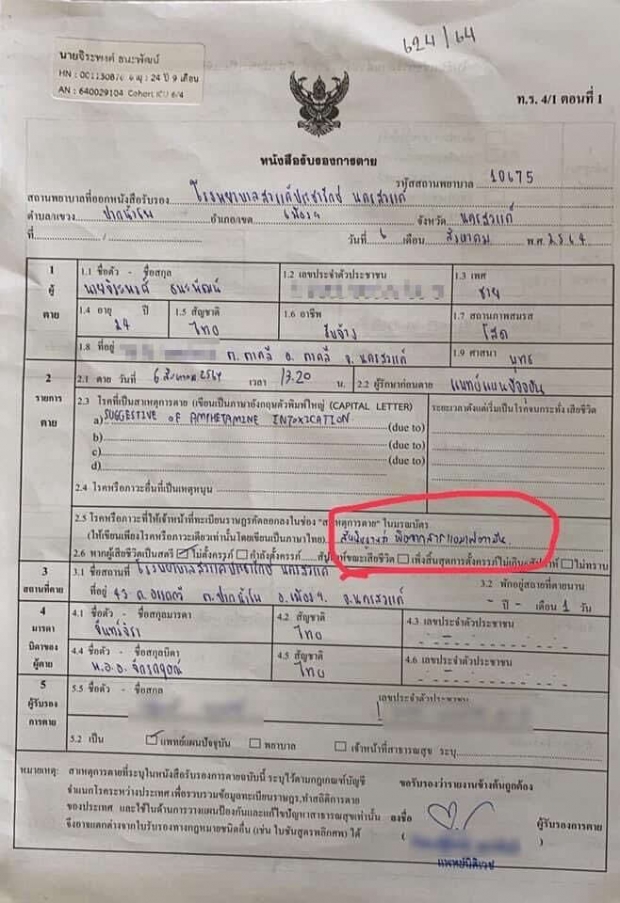 624/64
นายจิระพงศ์ ธนะพัฒน์
HN : 00113087/6 อายุ : 24 ปี 9 เดือน
AN : 640029104 Cohort ICU 6/4
ท.ร. 4/1 ตอนที่ 1
หนังสือรับรองการตาย
รหัสสถานพยาบาล 10675
สถานพยาบาลที่ออกหนังสือรับรอง โรงพยาบาลสวรรค์ประชารักษ์ นครสวรรค์
ตำบล/แขวง ปากน้ำโพ อำเภอ/เขต เมืองฯ จังหวัด นครสวรรค์
ที่ / วันที่ 6 เดือน สิงหาคม พ.ศ. 2564
1 ผู้ตาย
1.1 ชื่อตัว - ชื่อสกุล นายจิระพงศ์ ธนะพัฒน์
1.2 เลขประจำตัวประชาชน
1.3 เพศ ชาย
1.4 อายุ 24 ปี
1.5 สัญชาติ ไทย
1.6 อาชีพ รับจ้าง
1.7 สถานภาพสมรส โสด
1.8 ที่อยู่ ต. ตาคลี อ. ตาคลี จ. นครสวรรค์
1.9 ศาสนา พุทธ
2 รายการตาย
2.1 ตาย วันที่ 6 สิงหาคม 2564 เวลา 17.20 น.
2.2 ผู้รักษาก่อนตาย แพทย์แผนปัจจุบัน
2.3 โรคที่เป็นสาเหตุการตาย (เขียนเป็นภาษาอังกฤษตัวพิมพ์ใหญ่ (CAPITAL LETTER)
ระยะเวลาตั้งแต่เริ่มเป็นโรคจนกระทั่งเสียชีวิต
a) SUGGESTIVE OF AMPHETAMINE INTOXICATION (due to)
b) (due to)
c) (due to)
d)
2.4 โรคหรือภาวะอื่นที่เป็นเหตุหนุน
2.5 โรคหรือภาวะที่ให้เจ้าหน้าที่ทะเบียนราษฎรคัดลอกลงในช่อง "สาเหตุการตาย" ในมรณบัตร
(ให้เขียนเพียงโรคหรือภาวะเดียวเท่านั้นโดยเขียนเป็นภาษาไทย) สันนิษฐานว่า พิษจากสารแอมเฟตามีน
2.6 หากผู้เสียชีวิตเป็นสตรี ไม่ตั้งครรภ์ กำลังตั้งครรภ์ สัปดาห์ขณะเสียชีวิต เพิ่งสิ้นสุดการตั้งครรภ์ไม่เกิน 6 สัปดาห์ ไม่ทราบ
3 สถานที่ตาย
3.1 ชื่อสถานที่ โรงพยาบาลสวรรค์ประชารักษ์ นครสวรรค์
ที่อยู่ 43 ถ. อรรถกวี ต. ปากน้ำโพ อ. เมืองฯ จ. นครสวรรค์
3.2 พักอยู่สถานที่ตายนาน - ปี - เดือน 1 วัน
4 มารดา บิดาของผู้ตาย
4.1 ชื่อตัว - ชื่อสกุลมารดา จันทร์จิรา
4.2 สัญชาติ ไทย
4.3 เลขประจำตัวประชาชน
4.4 ชื่อตัว - ชื่อสกุลบิดา
4.5 สัญชาติ ไทย
4.6 เลขประจำตัวประชาชน
5 ผู้รับรองการตาย
5.5 ชื่อตัว - ชื่อสกุล
เลขประจำตัวประชาชน
5.2 เป็น แพทย์แผนปัจจุบัน พยาบาล เจ้าหน้าที่สาธารณสุข ระบุ
หมายเหตุ: สาเหตุการตายที่ระบุในหนังสือรับรองการตายฉบับนี้ ระบุไว้ตามกฎเกณฑ์บัญชี
จำแนกโรคระหว่างประเทศ เพื่อรวบรวมข้อมูลทะเบียนราษฎร,ทำสถิติการตาย
ของประเทศ และใช้ในด้านการวางแผนป้องกันและแก้ไขปัญหาสาธารณสุขเท่านั้น
จึงอาจแตกต่างจากใบรับรองทางกฎหมายชนิดอื่น (เช่น ใบชันสูตรพลิกศพ) ได้
ขอรับรองว่ารายงานข้างต้นถูกต้อง
ลงชื่อ ผู้รับรองการตาย
แพทย์นิติเวช